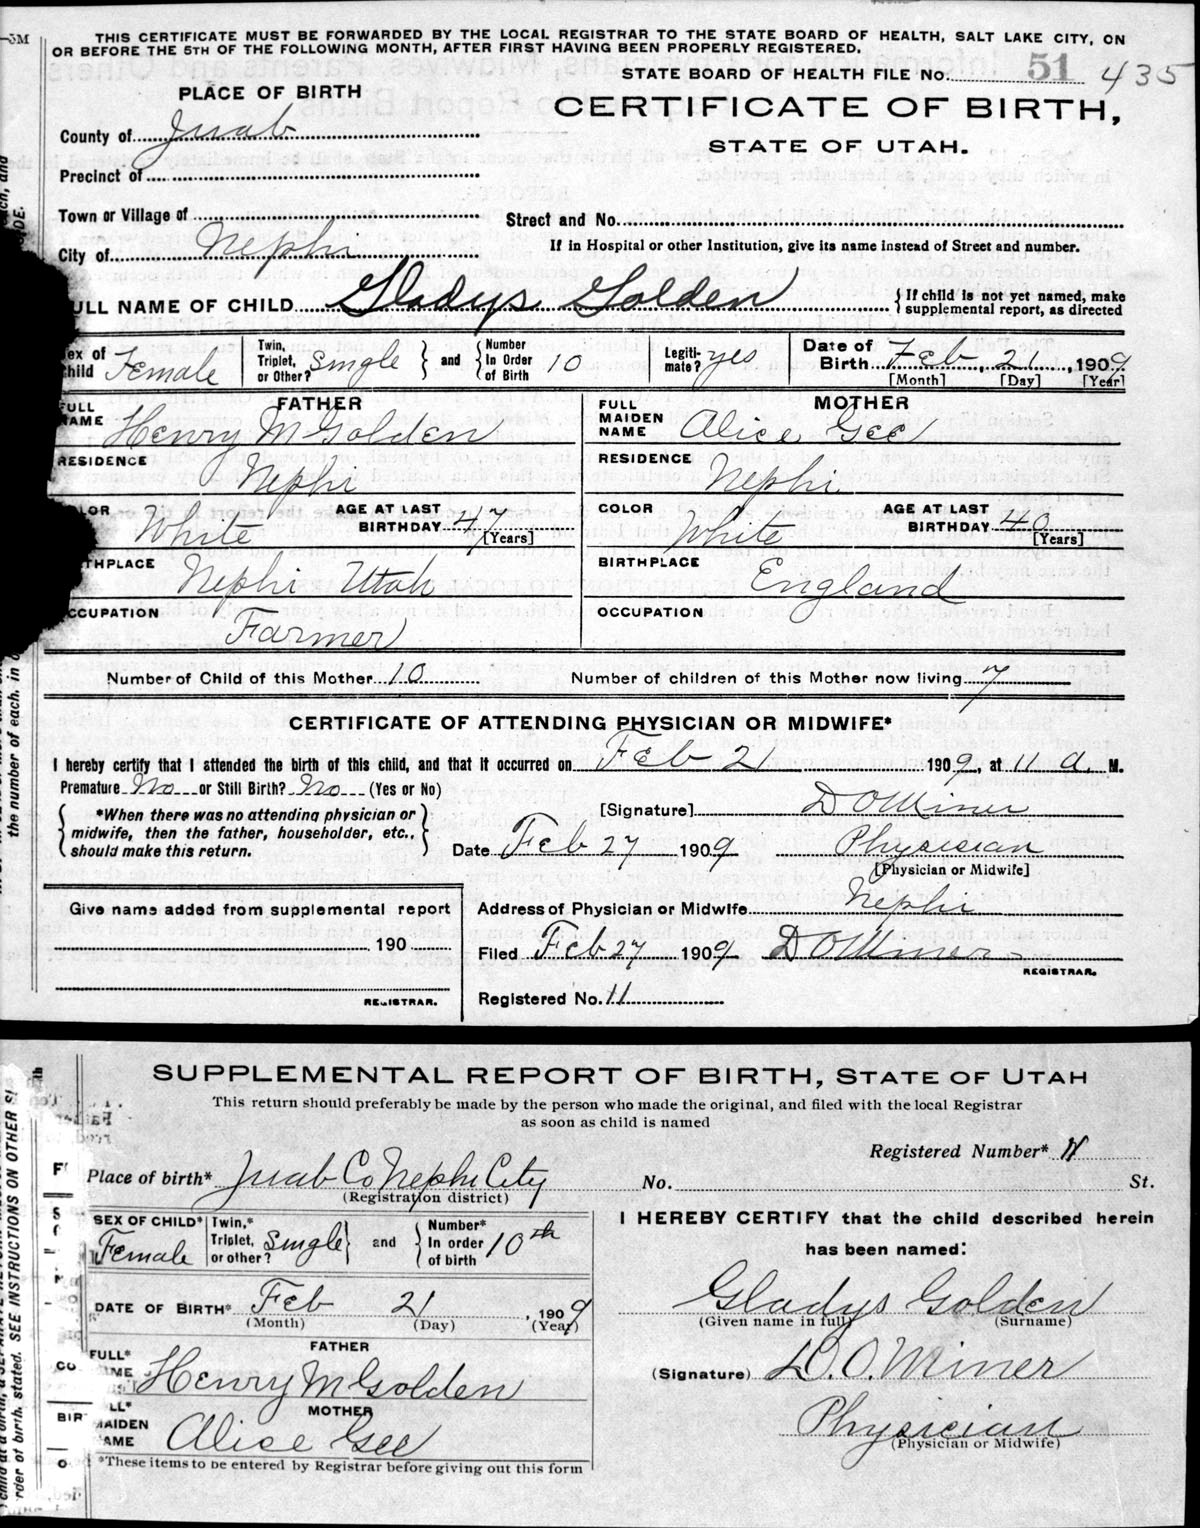 THIS CERTIFICATE MUST BE FORWARDED BY THE LOCAL REGISTRAR TO THE STATE BOARD OF HEALTH, SALT LAKE CITY, ON
OR BEFORE THE 5TH OF THE FOLLOWING MONTH, AFTER FIRST HAVING BEEN PROPERLY REGISTERED.
STATE BOARD OF HEALTH FILE No. 51 435
PLACE OF BIRTH
CERTIFICATE OF BIRTH,
STATE OF UTAH.
County of Juab
Precinct of
Town or Village of
Street and No.
City of Nephi
If in Hospital or other Institution, give its name instead of Street and number.
ULL NAME OF CHILD Gladys Golden {If child is not yet named, make
supplemental report, as directed
ex of Child Female Twin, Triplet, or Other? Single } and { Number In Order of Birth 10 Legitimate? yes Date of Birth Feb 21, 1909
[Month] [Day] [Year]
FATHER MOTHER
FULL NAME Henry M Golden FULL MAIDEN NAME Alice Gee
RESIDENCE Nephi RESIDENCE Nephi
LOR White AGE AT LAST BIRTHDAY 47 [Years] COLOR White AGE AT LAST BIRTHDAY 40 [Years]
THPLACE Nephi Utah BIRTHPLACE England
CCUPATION Farmer OCCUPATION
Number of Child of this Mother 10 Number of children of this Mother now living 7
CERTIFICATE OF ATTENDING PHYSICIAN OR MIDWIFE*
I hereby certify that I attended the birth of this child, and that it occurred on Feb 21 1909, at 11 a. M.
Premature No or Still Birth? No (Yes or No)
[Signature] D O Miner
{ *When there was no attending physician or
midwife, then the father, householder, etc.,
should make this return. }
Date Feb 27 1909 Physician
[Physician or Midwife]
Give name added from supplemental report
Address of Physician or Midwife Nephi
190
Filed Feb 27 1909 D O Miner
REGISTRAR.
REGISTRAR.
Registered No. 11
SUPPLEMENTAL REPORT OF BIRTH, STATE OF UTAH
This return should preferably be made by the person who made the original, and filed with the local Registrar
as soon as child is named
Registered Number* 11
Place of birth* Juab Co Nephi City No. St.
(Registration district)
SEX OF CHILD* Female Twin,* Triplet, or other? Single } and { Number* In order of birth 10th
I HEREBY CERTIFY that the child described herein
has been named:
DATE OF BIRTH* Feb 21, 1909
(Month) (Day) (Year)
Gladys Golden
(Given name in full) (Surname)
FATHER
FULL* Henry M Golden
(Signature) D. O. Miner
MOTHER
MAIDEN Alice Gee
Physician
(Physician or Midwife)
*These items to be entered by Registrar before giving out this form
the number of each. in o
order of birth. stated. SEE INSTRUCTIONS ON OTHER SI